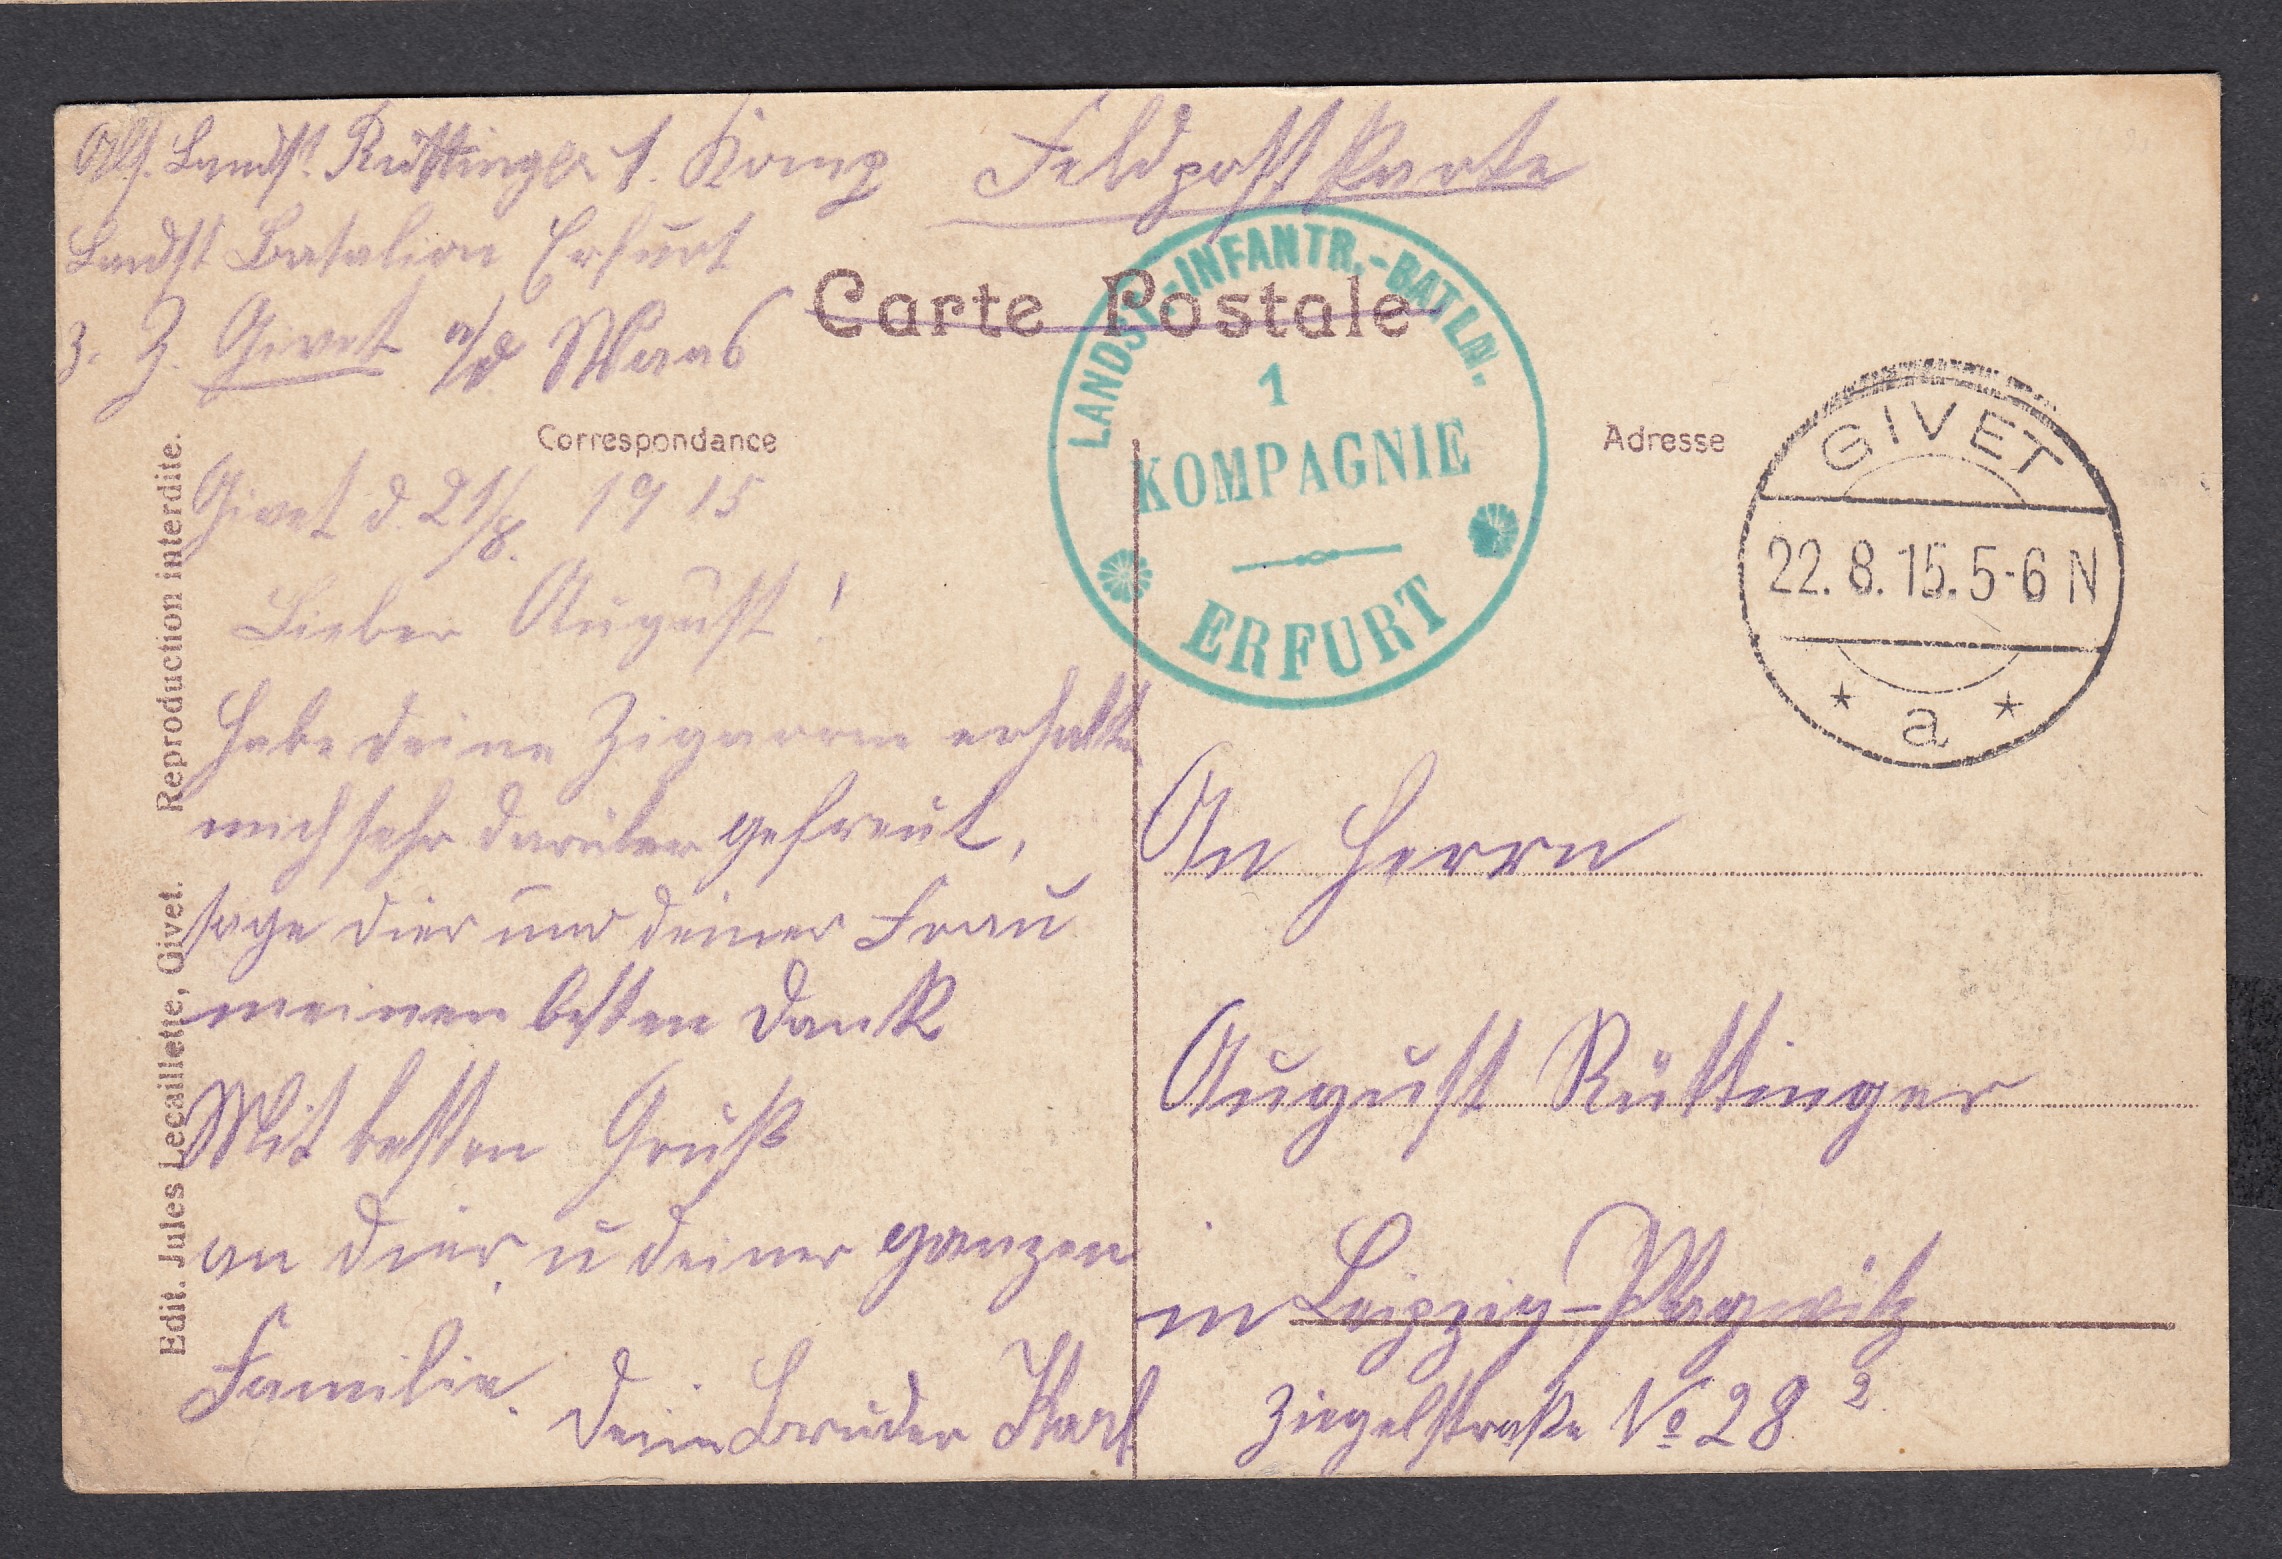 Abs. Landst. Rüttinger 1. Komp
Landst Batalion Erfurt
z. Z. Givet a/d Maas
Feldpostkarte
Carte Postale
LANDST.-INFANTR.-BATLN.
1
KOMPAGNIE
ERFURT
Correspondance
Adresse
GIVET
22.8.15.5-6N
* a *
Givet d. 21/8. 1915
Lieber August!
Habe deine Zigarren erhalten
mich sehr darüber gefreut,
sage dier und deiner Frau
meinen besten Dank
Mit besten Gruß
an dier u deiner ganzen
Familie.
Dein Bruder Karl
An Herrn
August Rüttinger
in Leipzig-Plagwitz
Ziegelstraße No 28 2
Edit. Jules Lecaillette, Givet. Reproduction interdite.